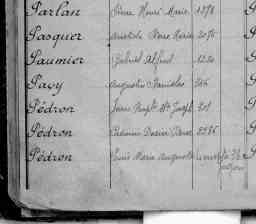 Parlan Pierre Henri Marie 1376
Pasquer Anatole Pierre Marie 2075
Paumier Gabriel Alfred 1230
Pavy Augustin Stanislas 266
Pédron Jean Bapt. Me Joseph 201
Pédron Pierre 2286
Pédron Louis Marie Auguste